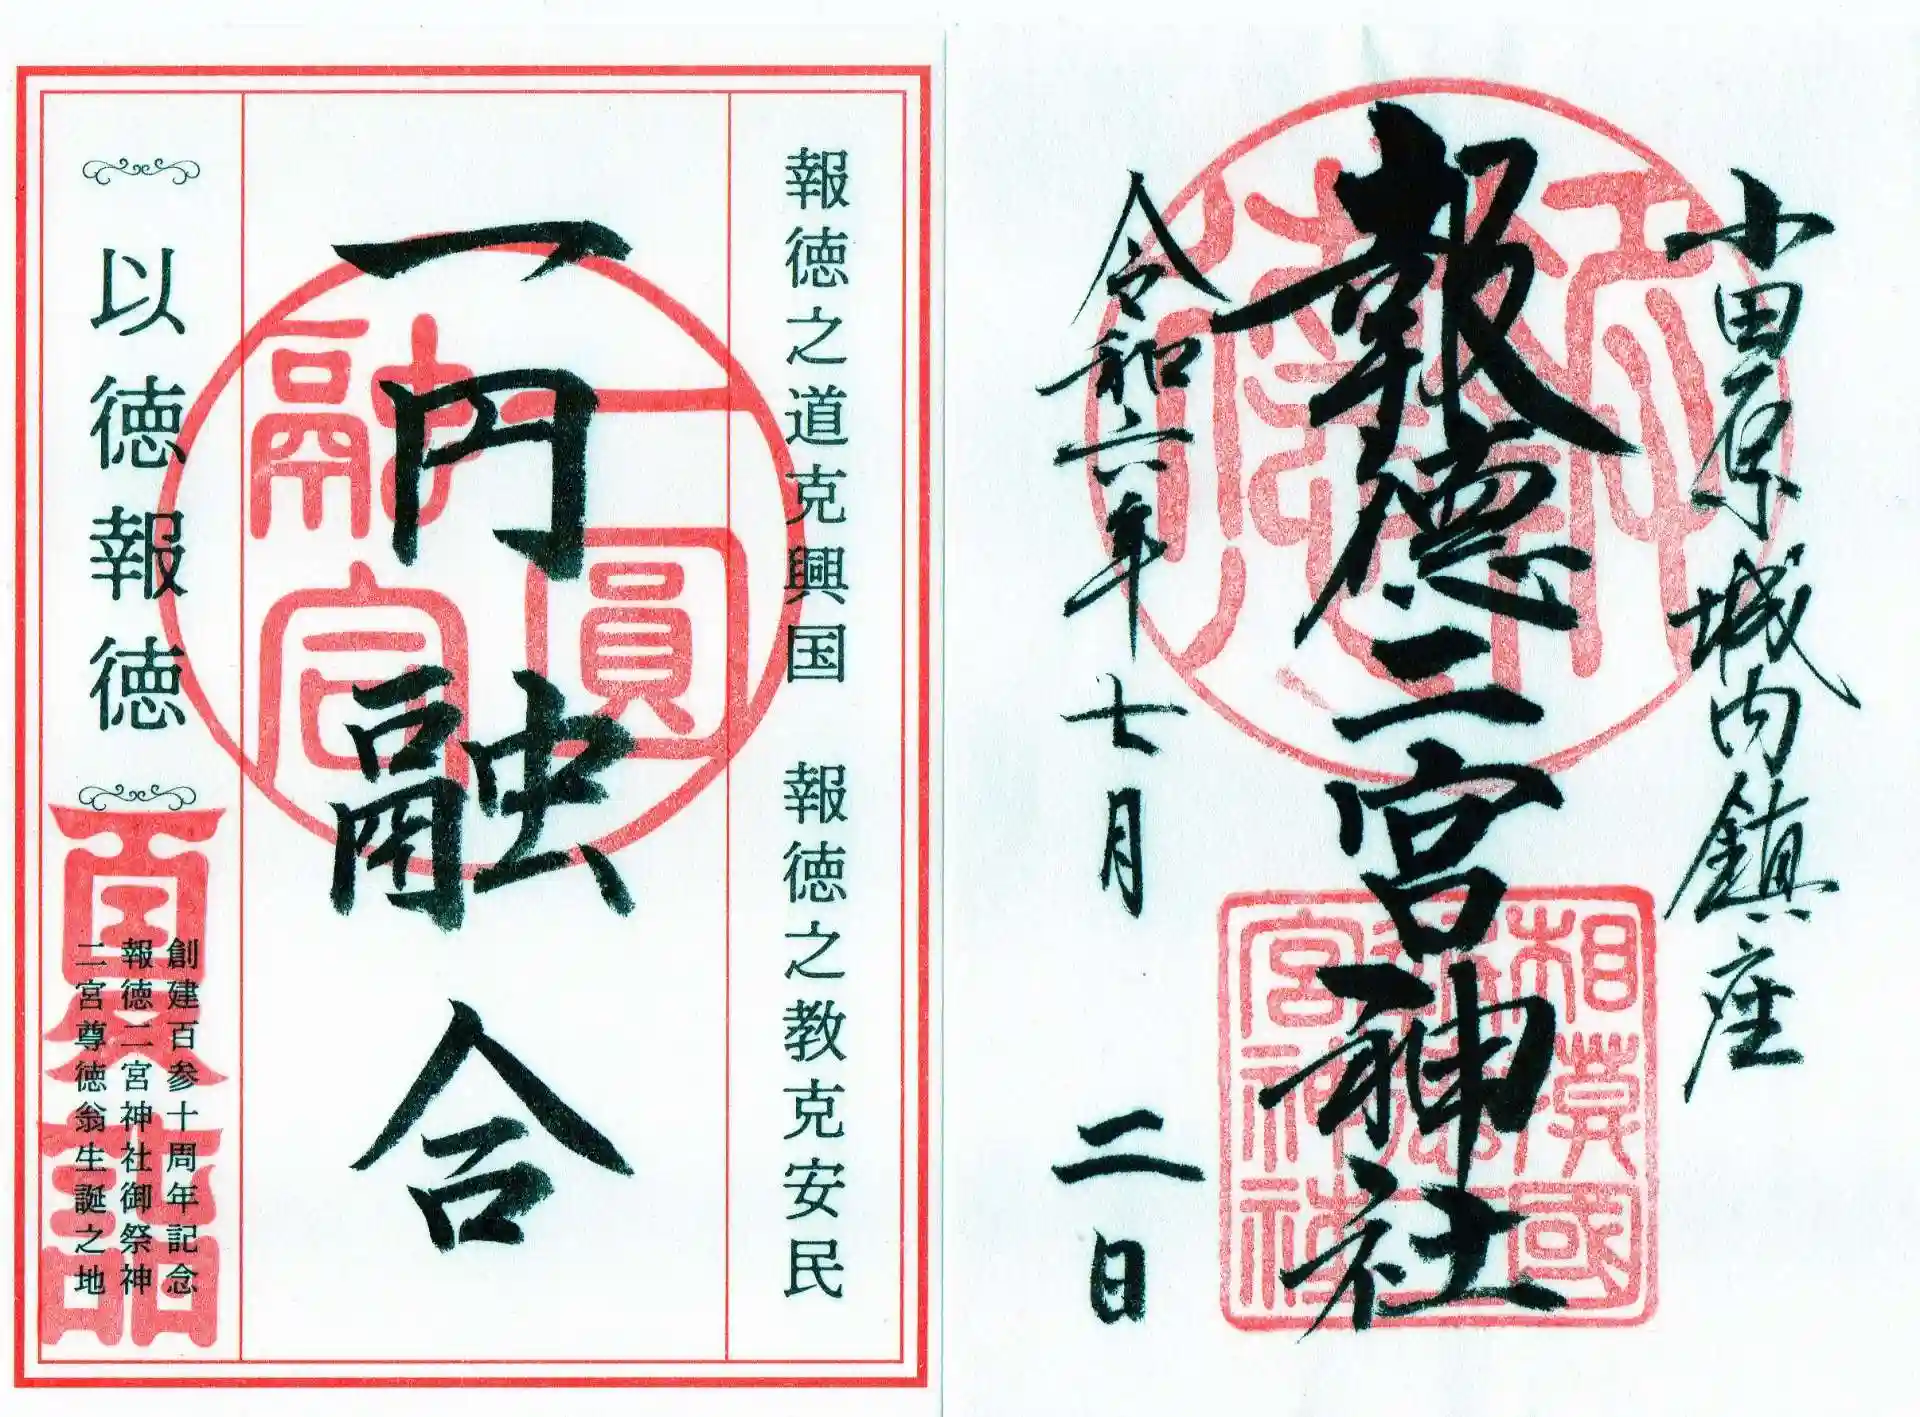 小田原城内鎮座
報徳二宮神社
令和六年七月二日
相模國
報徳二
宮神社
報徳之道克興国 報徳之教克安民
一円融合
一圓
融合
以徳報徳
夏詣
創建百参十周年記念
報徳二宮神社御祭神
二宮尊徳翁生誕之地